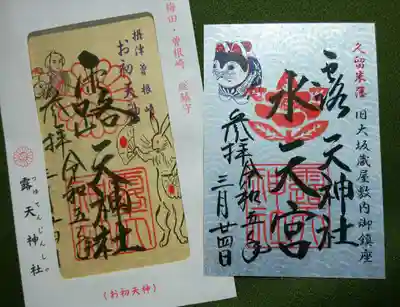 梅田・曽根崎 総鎮守
摂津 曽根崎
お初天神
露天神社
参拝 令和五年
露天神社
つゆてんじんしゃ。
(お初天神)
久留米藩 旧大坂蔵屋敷内御鎮座
露天神社
水天宮
参拝 令和五年
三月廿四日